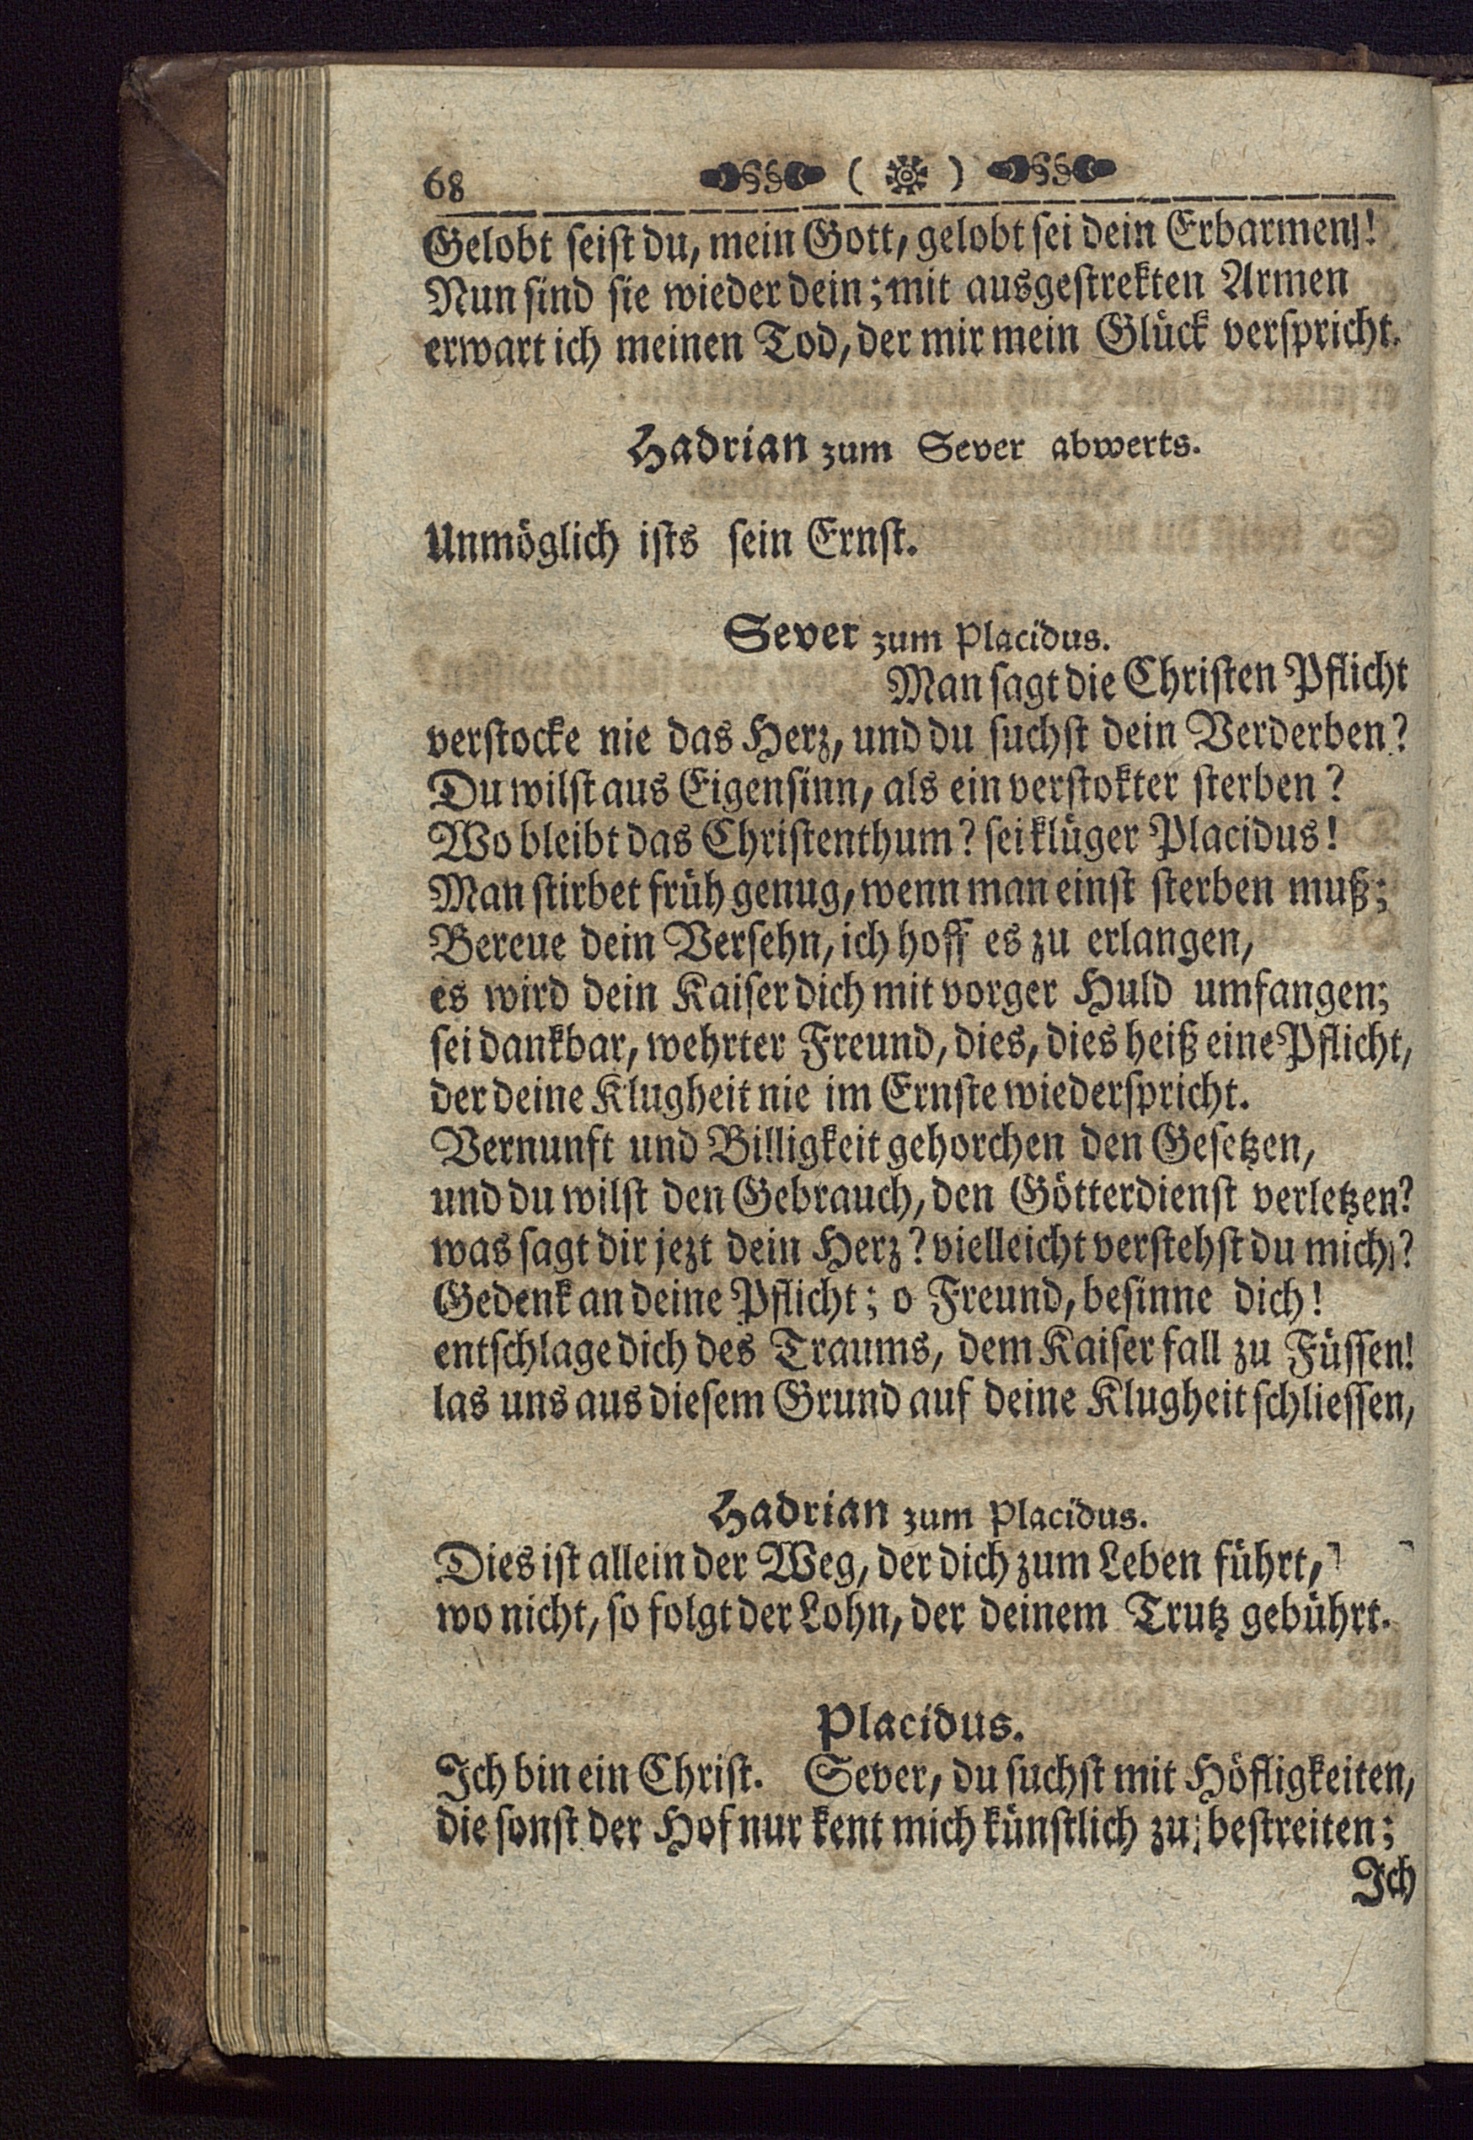 68 ( )
Gelobt seist du, mein Gott, gelobt sei dein Erbarmen!
Nun sind sie wieder dein; mit ausgestrekten Armen
erwart ich meinen Tod, der mir mein Glück verspricht.
Hadrian zum Sever abwerts.
Unmöglich ists sein Ernst.
Sever zum Placidus.
Man sagt die Christen Pflicht
verstocke nie das Herz, und du suchst dein Verderben?
Du wilst aus Eigensinn, als ein verstokter sterben?
Wo bleibt das Christenthum? sei klüger Placidus!
Man stirbet früh genug, wenn man einst sterben muß;
Bereue dein Versehn, ich hoff es zu erlangen,
es wird dein Kaiser dich mit vorger Huld umfangen;
sei dankbar, wehrter Freund, dies, dies heiß eine Pflicht,
der deine Klugheit nie im Ernste wiederspricht.
Vernunft und Billigkeit gehorchen den Gesetzen,
und du wilst den Gebrauch, den Götterdienst verletzen?
was sagt dir jezt dein Herz? vielleicht verstehst du mich?
Gedenk an deine Pflicht; o Freund, besinne dich!
entschlage dich des Traums, dem Kaiser fall zu Füssen!
las uns aus diesem Grund auf deine Klugheit schliessen,
Hadrian zum Placidus.
Dies ist allein der Weg, der dich zum Leben führt,
wo nicht, so folgt der Lohn, der deinem Trutz gebührt.
Placidus.
Ich bin ein Christ. Sever, du suchst mit Höfligkeiten,
die sonst der Hof nur kent mich künstlich zu bestreiten;
Ich